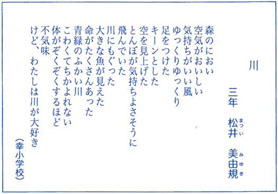 川
三年 松井 美由規
まつい みゆき
森のにおい
空気がおいしい
気持ちがいい風
ゆっくりゆっくり
足をつけた
キーンとした
空を見上げた
とんぼが気持ちよさそうに
飛んでいた
川にもぐった
大きな魚が見えた
命がたくさんあった
青緑のふかい川
こわくてちかよれない
体がぞくぞくするほど
不気味
けど、わたしは川が大好き
(幸小学校)